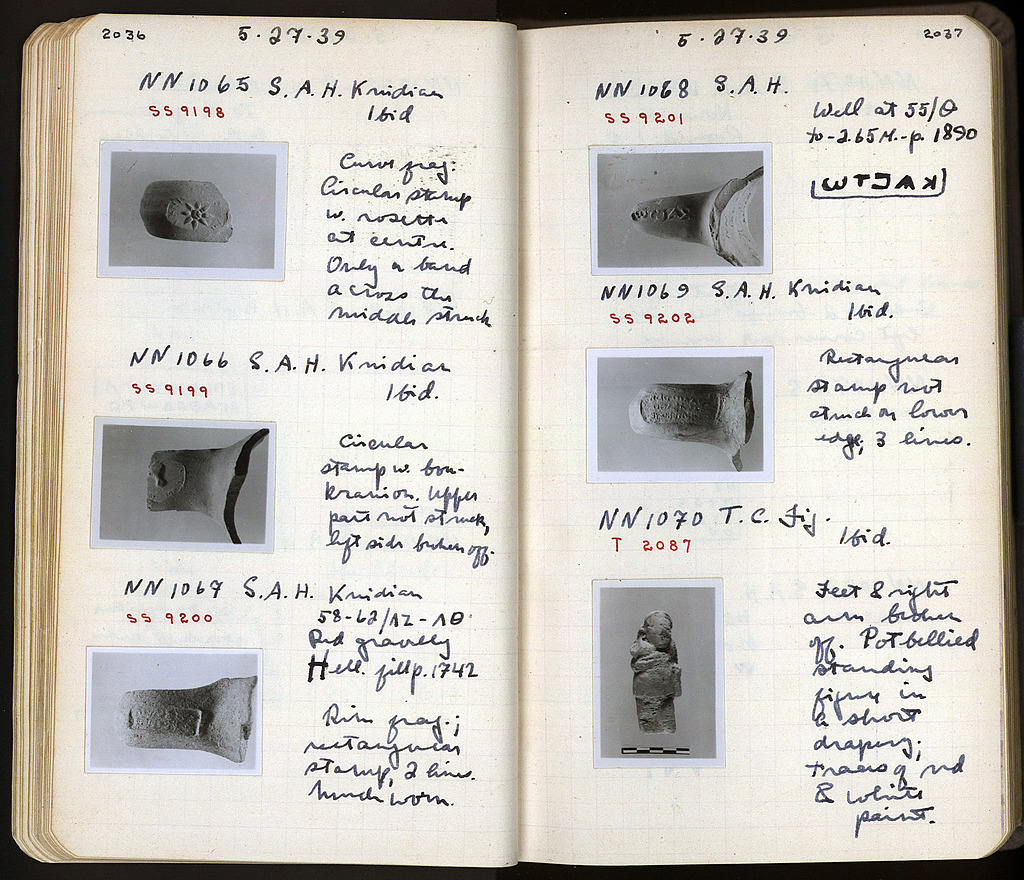 2036
5·27·39
NN1065 S.A.H. Knidian
SS 9198
Ibid
Curve frag:
Circular stamp
w. rosette
at centre.
Only a band
across the
middle struck
NN1066 S.A.H. Knidian
SS 9199
Ibid.
Circular
stamp w. bou-
kranion. Upper
part not struck,
left side broken off.
NN1067 S.A.H. Knidian
SS 9200
58-62/ΛΖ-ΛΘ
Red gravelly
Hell. fill p. 1742
Rim frag.;
rectangular
stamp, 2 lines.
Much worn.
5·27·39
2037
NN1068 S.A.H.
SS 9201
Well at 55/Θ
to -2.65M.-p. 1890
NN1069 S.A.H. Knidian
SS 9202
Ibid.
Rectangular
stamp not
struck on lower
edge, 3 lines.
NN1070 T.C. Fig.
T 2087
Ibid.
Feet & right
arm broken
off. Potbellied
standing
figure in
a short
drapery;
traces of red
& white
paint.